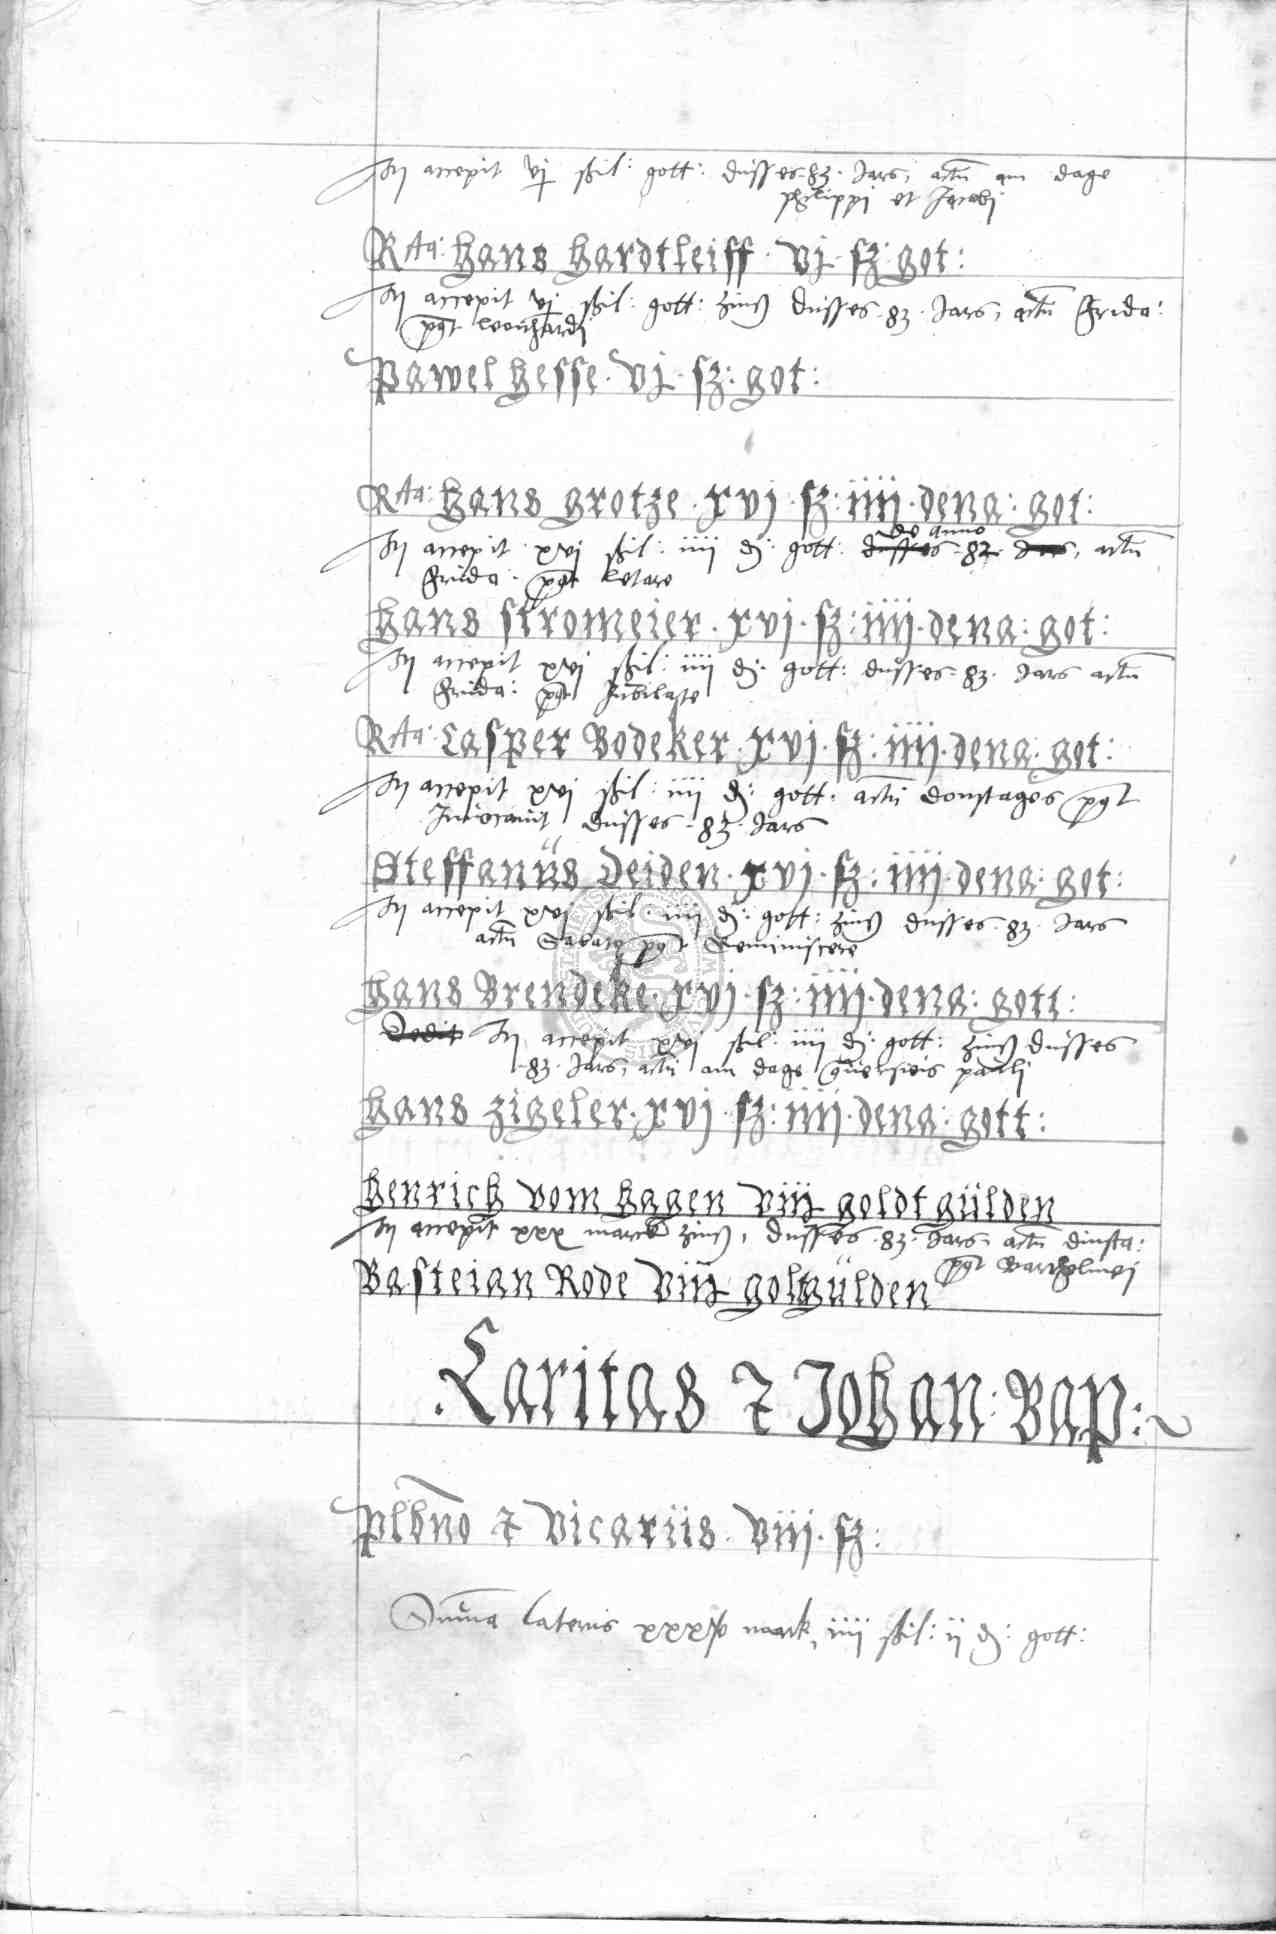 accepit vj schil: gott: dusses 83 Jars, actum am dage
philippi et Jacobi
Rta: hans hardtleiff · vj · sz: got:
accepit vj schil: gott: zinß dusses 83 Jars, actum frida:
post leonhardi
pawel hesse · vj · sz: got:
Rta: hans grotze · xvj · sz: iiij · dena: got:
de anno
accepit xvj schil: iiij d: gott: dusses 82 Jars, actum
frida: post letare
hans stromeier · xvj · sz: iiij · dena: got:
accepit xvj schil: iiij d: gott: dusses 83 Jars actum
frida: post Jubilate
Rta: Casper Bodeker · xvj · sz: iiij · dena: got:
accepit xvj schil: iiij d: gott: actum donstages post
Invocavit dusses 83 Jars
Steffanus Deiden · xvj · sz: iiij · dena: got:
accepit xvj schil: iiij d: gott: zinß dusses 83 Jars
actum Sabato post Reminiscere
hans Brendeke · xvj · sz: iiij · dena: gott:
Dedit accepit xvj schil: iiij d: gott: zinß dusses
83 Jars, actum am dage conversionis pauli
hans zigeler · xvj · sz: iiij · dena: gott:
henrich vom hagen viij goldt gülden
accepit xxx marck zinß, dusses 83 Jars actum dinsta:
post Bartholmei
Basteian Rode viij goltgülden
Caritas & Johan: Bap:
plbno & vicariis · viij · sz:
Summa lateris mark, iiij schil: ij d: gott: